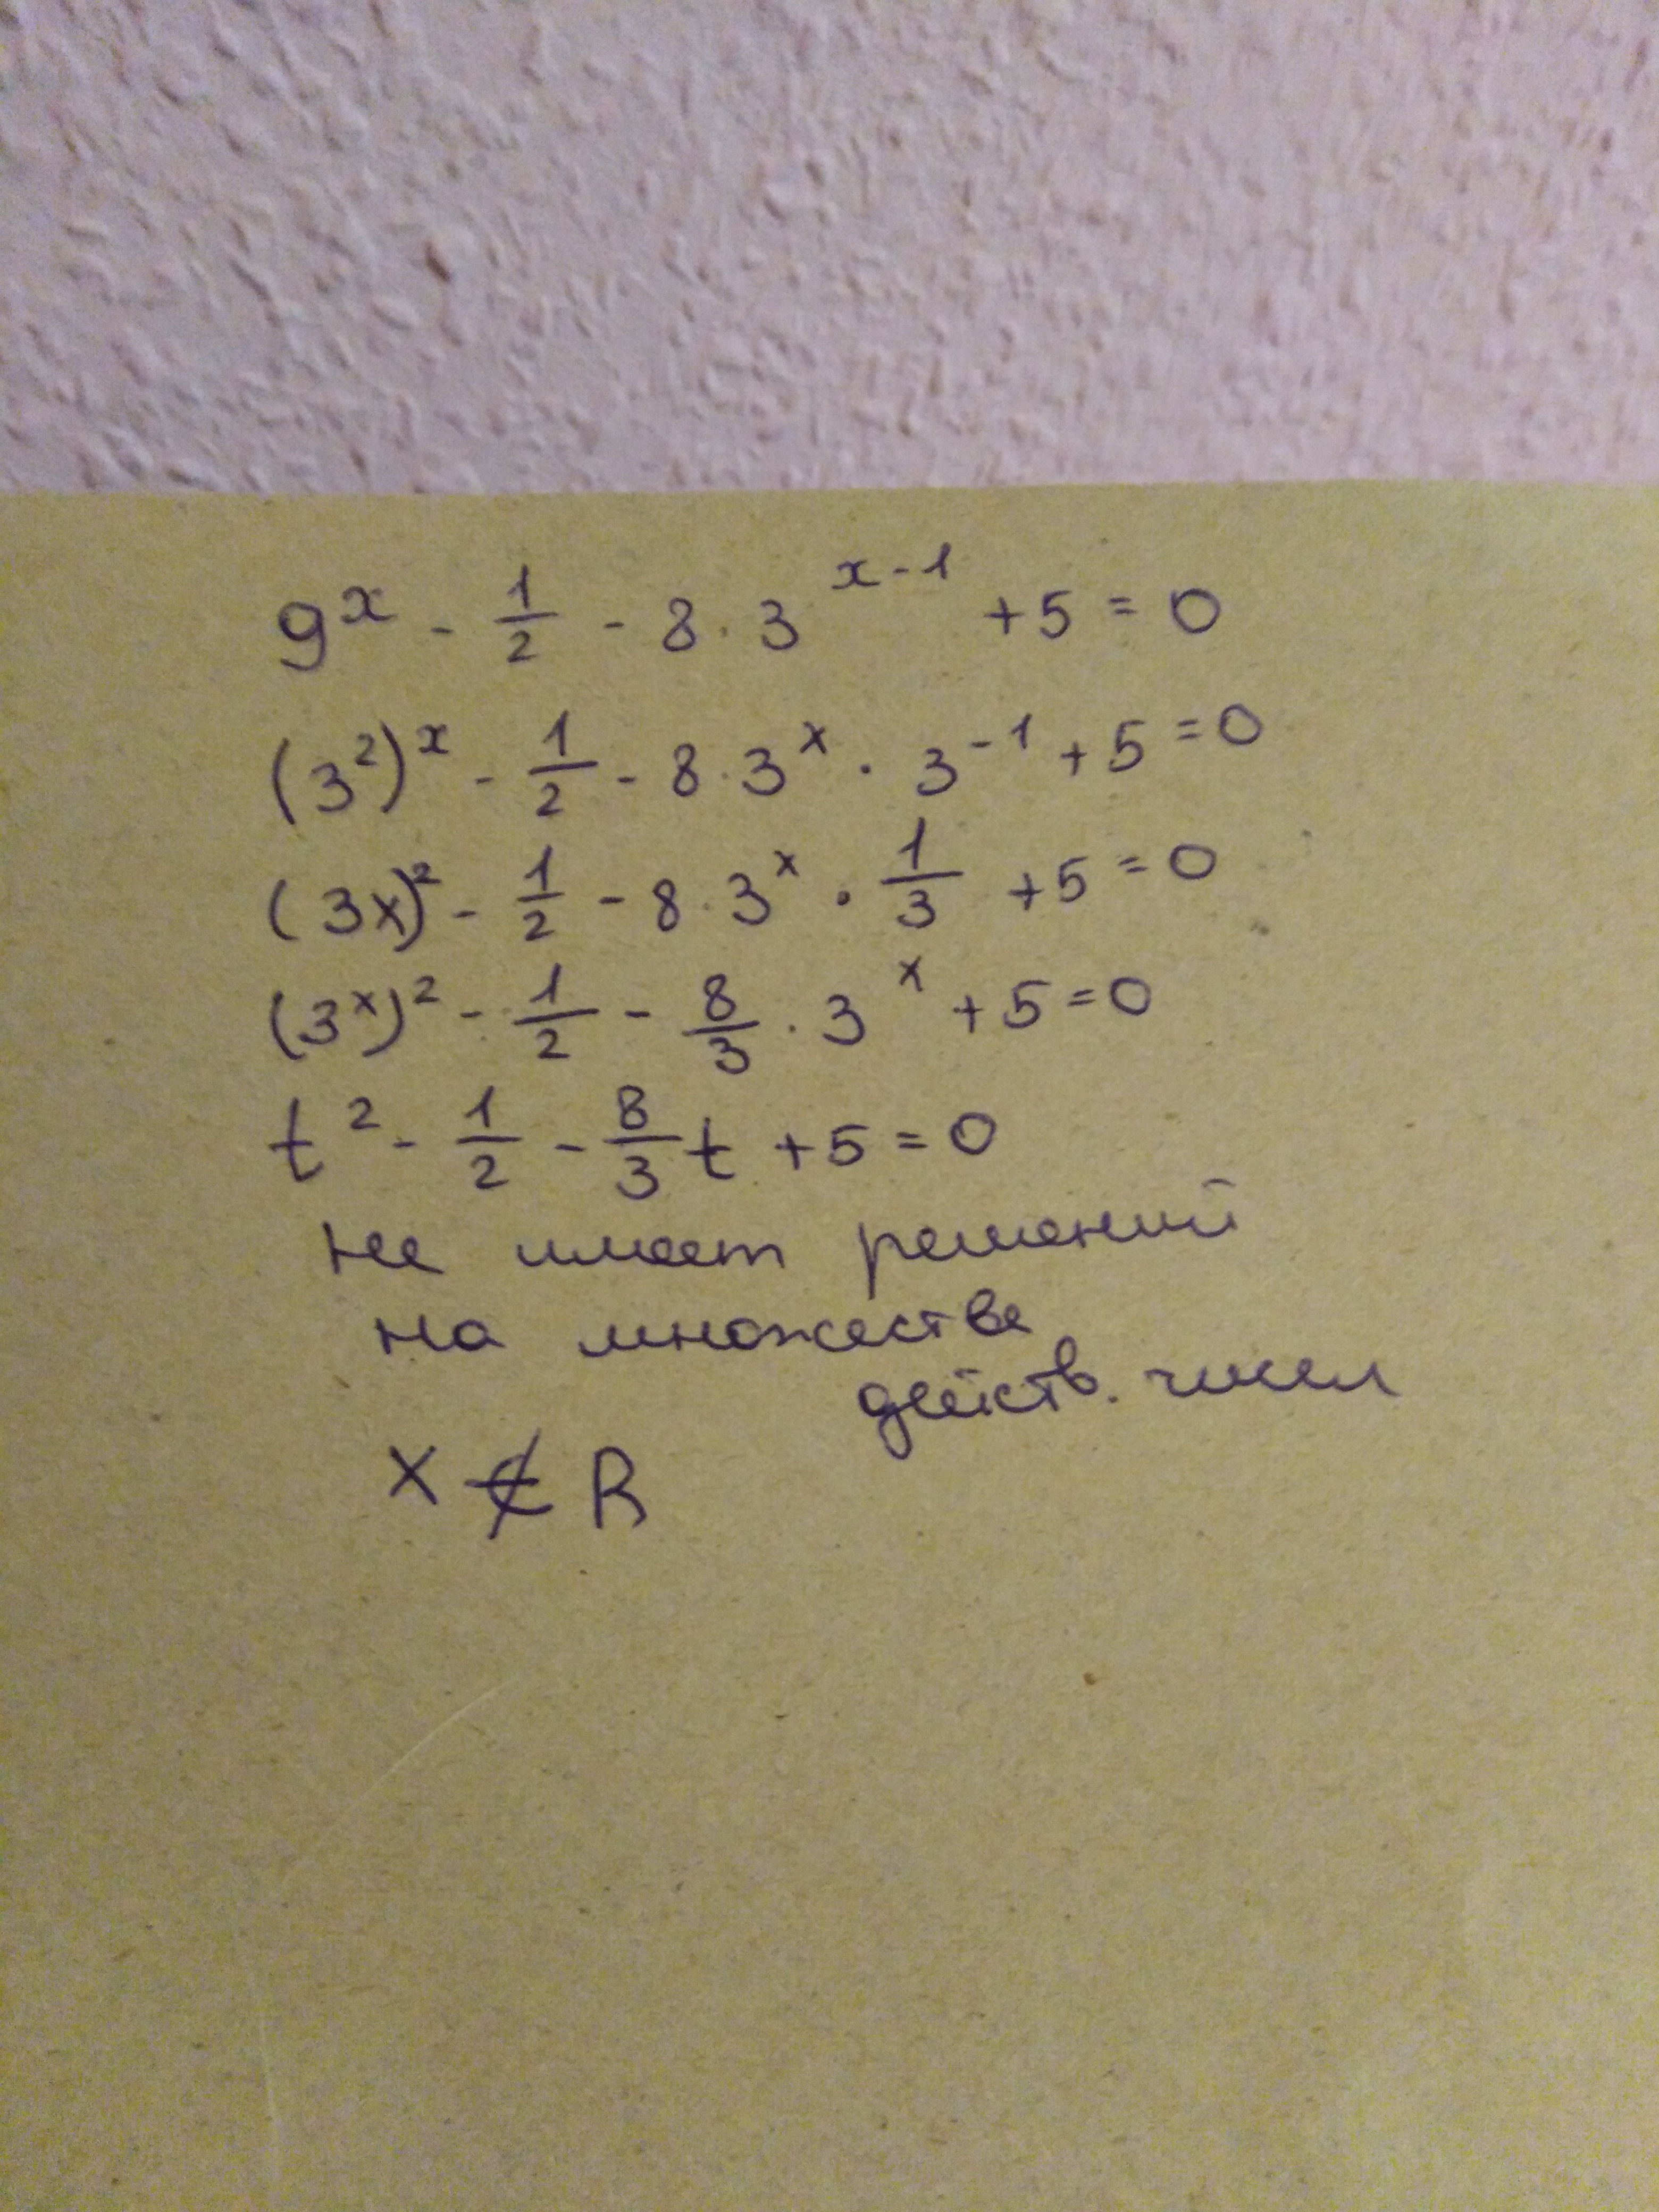 9ˣ - 1/2 - 8 · 3ˣ⁻¹ + 5 = 0
(3²)ˣ - 1/2 - 8 · 3ˣ · 3⁻¹ + 5 = 0
(3x)² - 1/2 - 8 · 3ˣ · 1/3 + 5 = 0
(3ˣ)² - 1/2 - 8/3 · 3ˣ + 5 = 0
t² - 1/2 - 8/3 t + 5 = 0
не имеет решений
на множестве
действ. чисел
x ∉ R